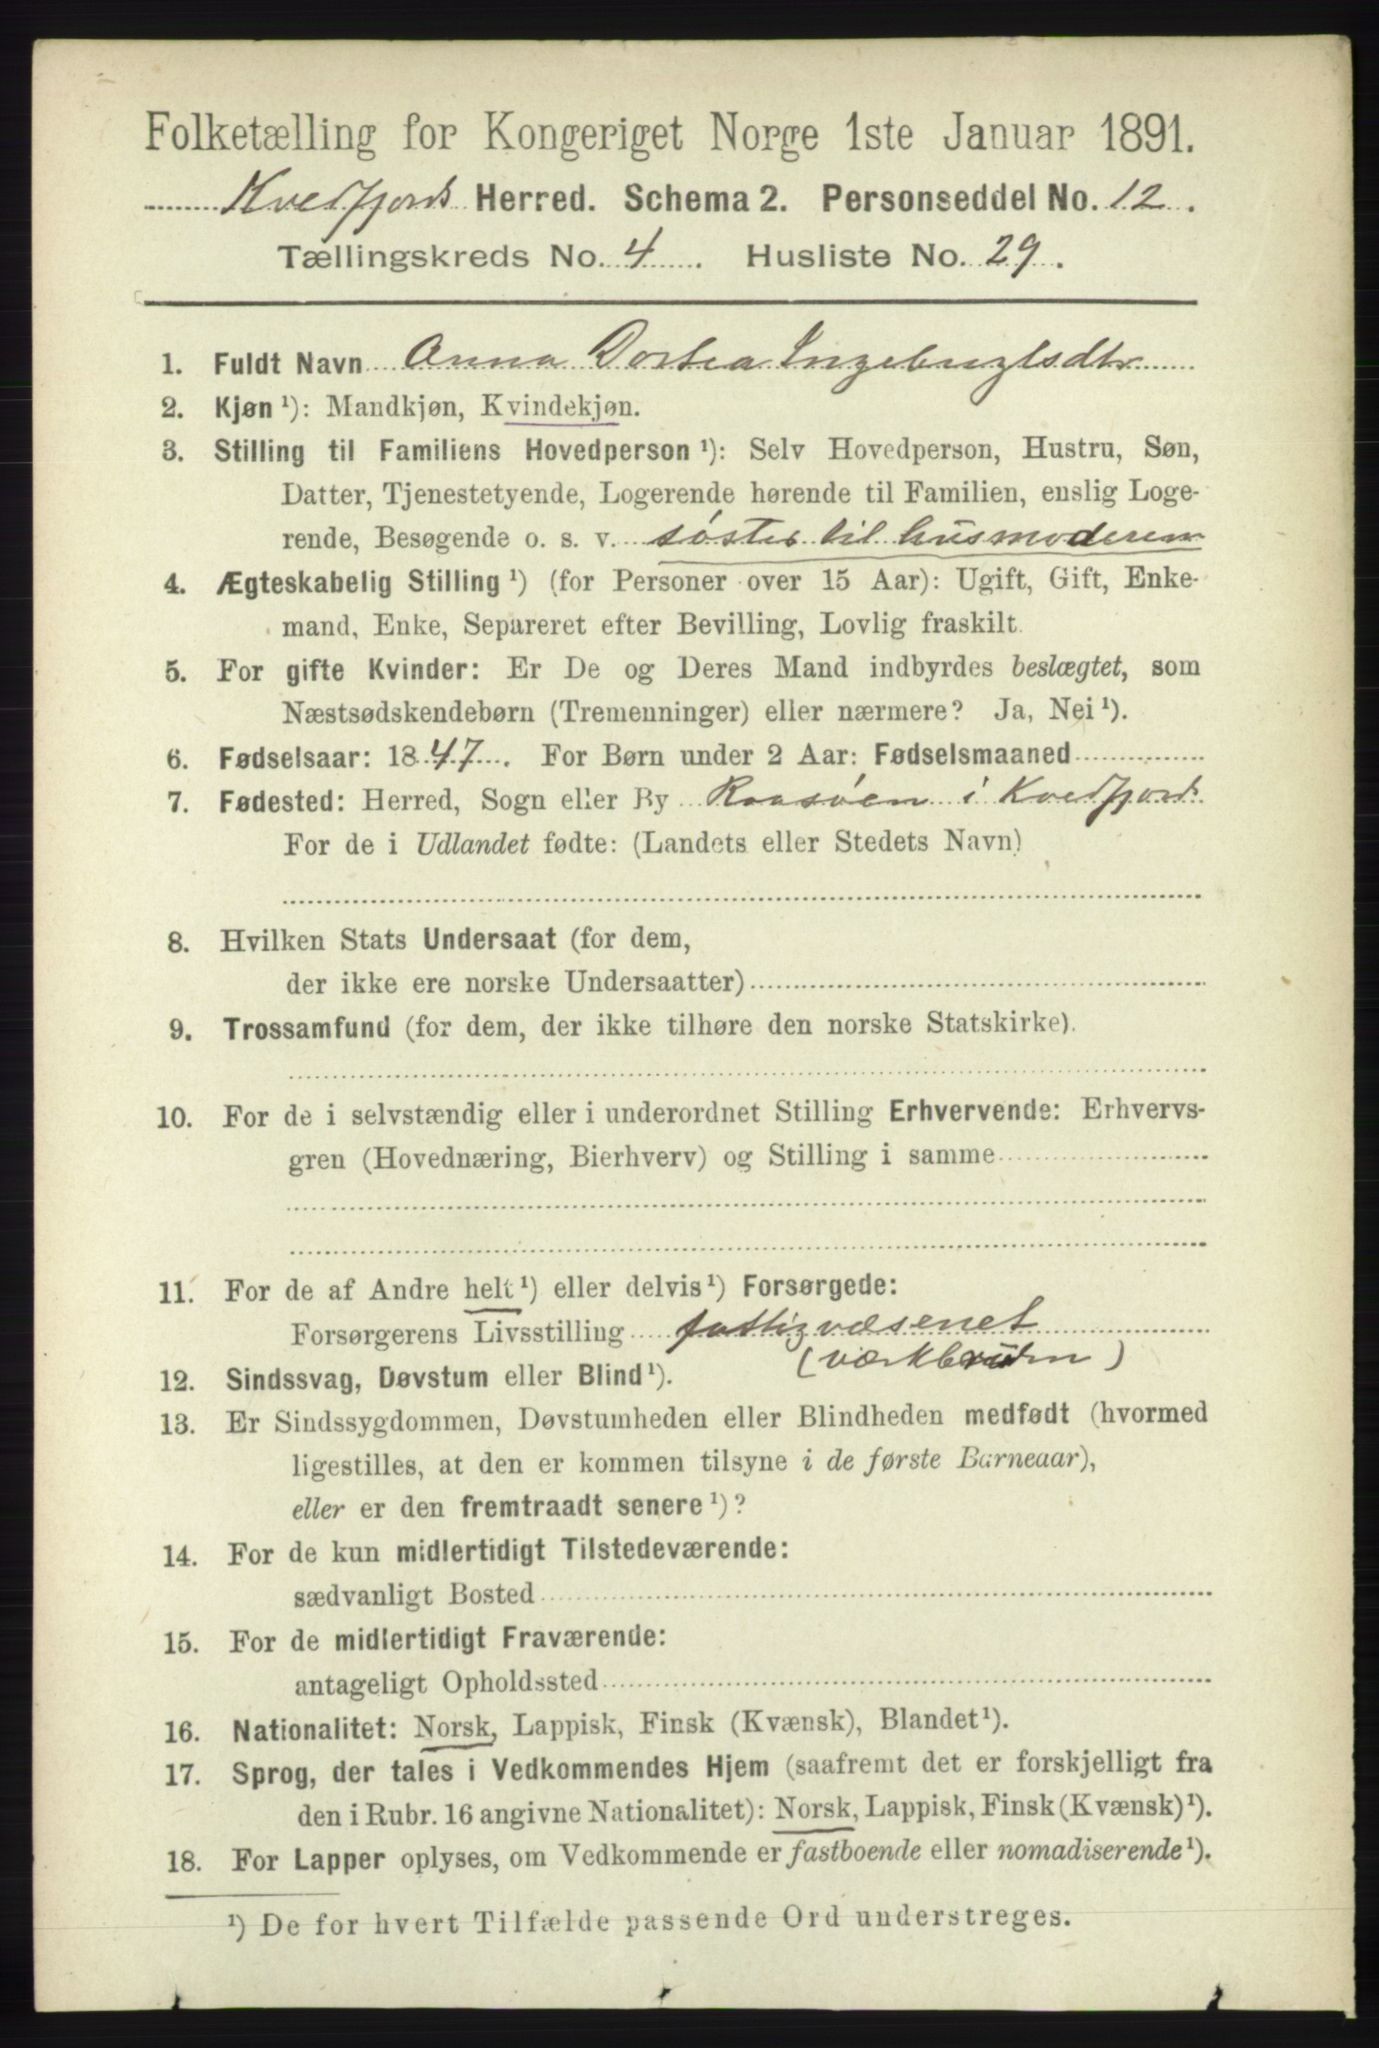 Folketælling for Kongeriget Norge 1ste Januar 1891.
Kvedfjords Herred. Schema 2. Personseddel No. 12.
Tællingskreds No. 4. Husliste No. 29.
1. Fuldt Navn Anna Dortea Ingebrigtsdtr
2. Kjøn ¹): Mandkjøn, Kvindekjøn.
3. Stilling til Familiens Hovedperson ¹): Selv Hovedperson, Hustru, Søn,
Datter, Tjenestetyende, Logerende hørende til Familien, enslig Loge-
rende, Besøgende o. s. v. søster til husmoderen
4. Ægteskabelig Stilling ¹) (for Personer over 15 Aar): Ugift, Gift, Enke-
mand, Enke, Separeret efter Bevilling, Lovlig fraskilt.
5. For gifte Kvinder: Er De og Deres Mand indbyrdes beslægtet, som
Næstsødskendebørn (Tremenninger) eller nærmere? Ja, Nei ¹).
6. Fødselsaar: 1847. For Børn under 2 Aar: Fødselsmaaned
7. Fødested: Herred, Sogn eller By i Kvedfjord
For de i Udlandet fødte: (Landets eller Stedets Navn)
8. Hvilken Stats Undersaat (for dem,
der ikke ere norske Undersaatter)
9. Trossamfund (for dem, der ikke tilhøre den norske Statskirke).
10. For de i selvstændig eller i underordnet Stilling Erhvervende: Erhvervs-
gren (Hovednæring, Bierhverv) og Stilling i samme
11. For de af Andre helt ¹) eller delvis ¹) Forsørgede:
Forsørgerens Livsstilling fattigvæsenet
(værkbruden)
12. Sindssvag, Døvstum eller Blind ¹).
13. Er Sindssygdommen, Døvstumheden eller Blindheden medfødt (hvormed
ligestilles, at den er kommen tilsyne i de første Barneaar),
eller er den fremtraadt senere ¹)?
14. For de kun midlertidigt Tilstedeværende:
sædvanligt Bosted
15. For de midlertidigt Fraværende:
antageligt Opholdssted
16. Nationalitet: Norsk, Lappisk, Finsk (Kvænsk), Blandet ¹).
17. Sprog, der tales i Vedkommendes Hjem (saafremt det er forskjelligt fra
den i Rubr. 16 angivne Nationalitet): Norsk, Lappisk, Finsk (Kvænsk) ¹).
18. For Lapper oplyses, om Vedkommende er fastboende eller nomadiserende ¹).
¹) De for hvert Tilfælde passende Ord understreges.